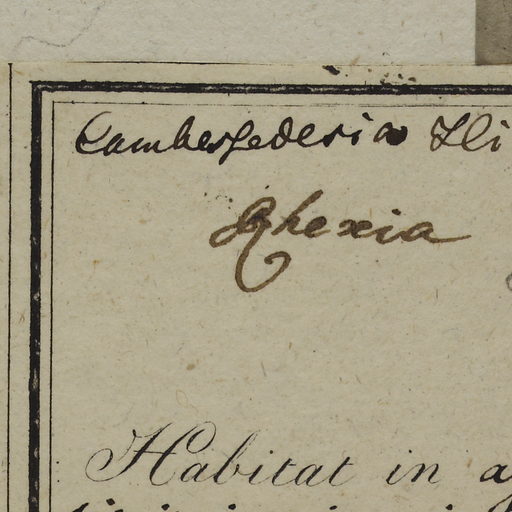 Cambessedesia Ili
Rhexia
Habitat in